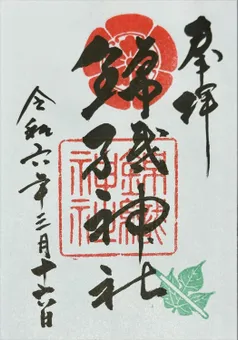 奉拝
錦織神社
錦織神社
令和六年三月十六日